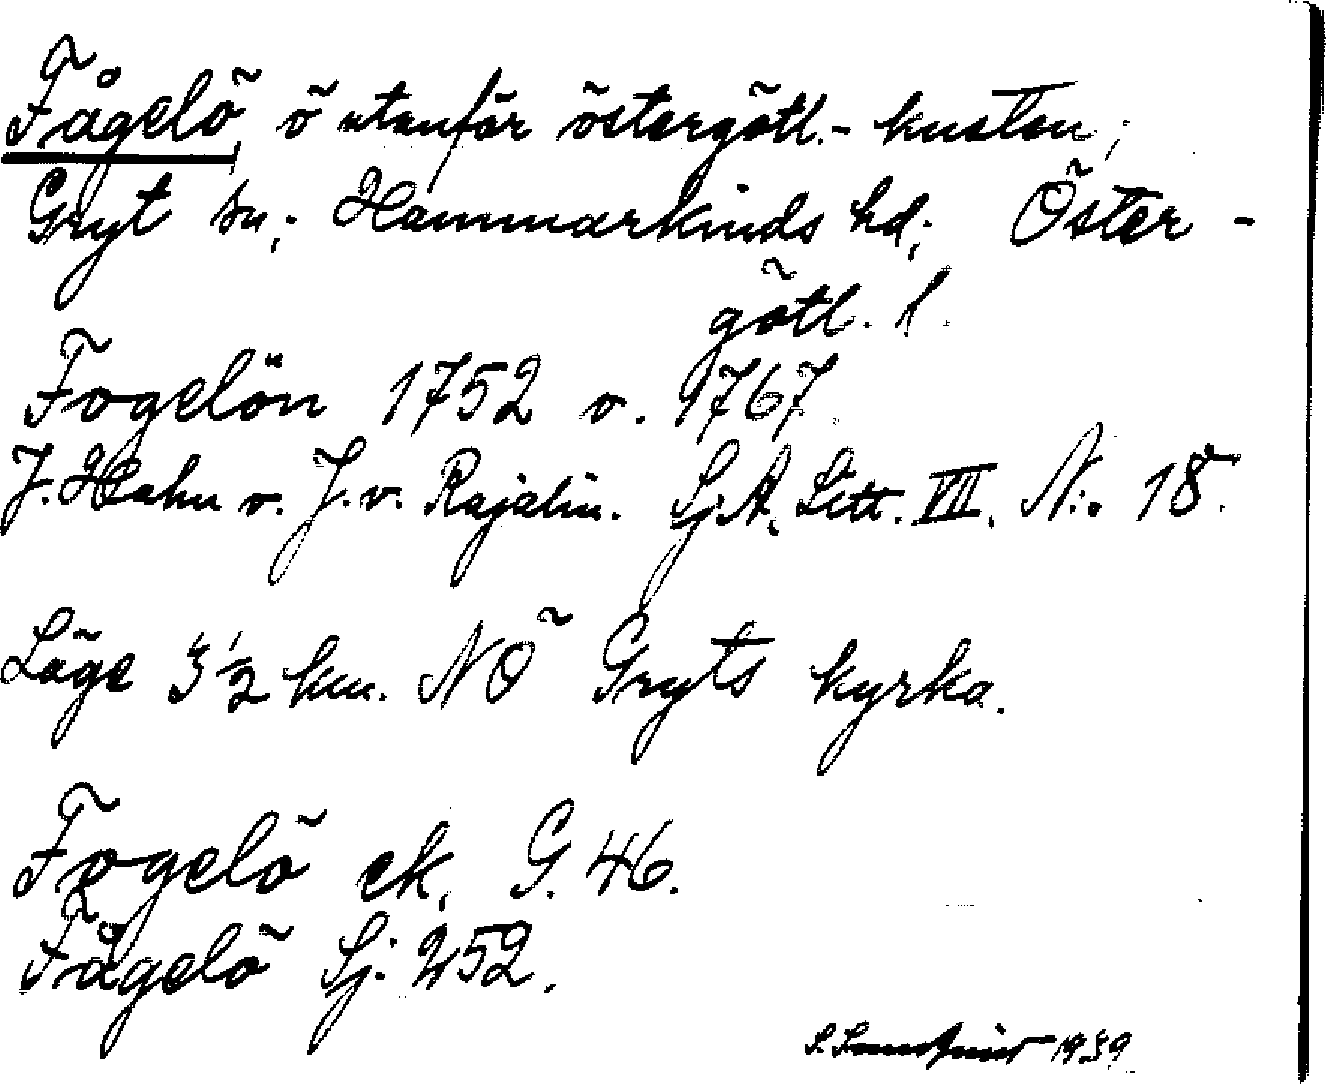 Fågelö, ö utanför östergötl.- kusten;
Gryt sn; Hammarkinds hd; Öster-
götl. l.
Fogelön 1752 o. 1767.
J. Hahn o. J. v. Rajalin. Sj.A. Litt. VII. N:o 18.
Läge 3 1/2 km. NÖ Gryts kyrka.
Fogelö ek. G. 46.
Fågelö Sj. 252.
S. 1939